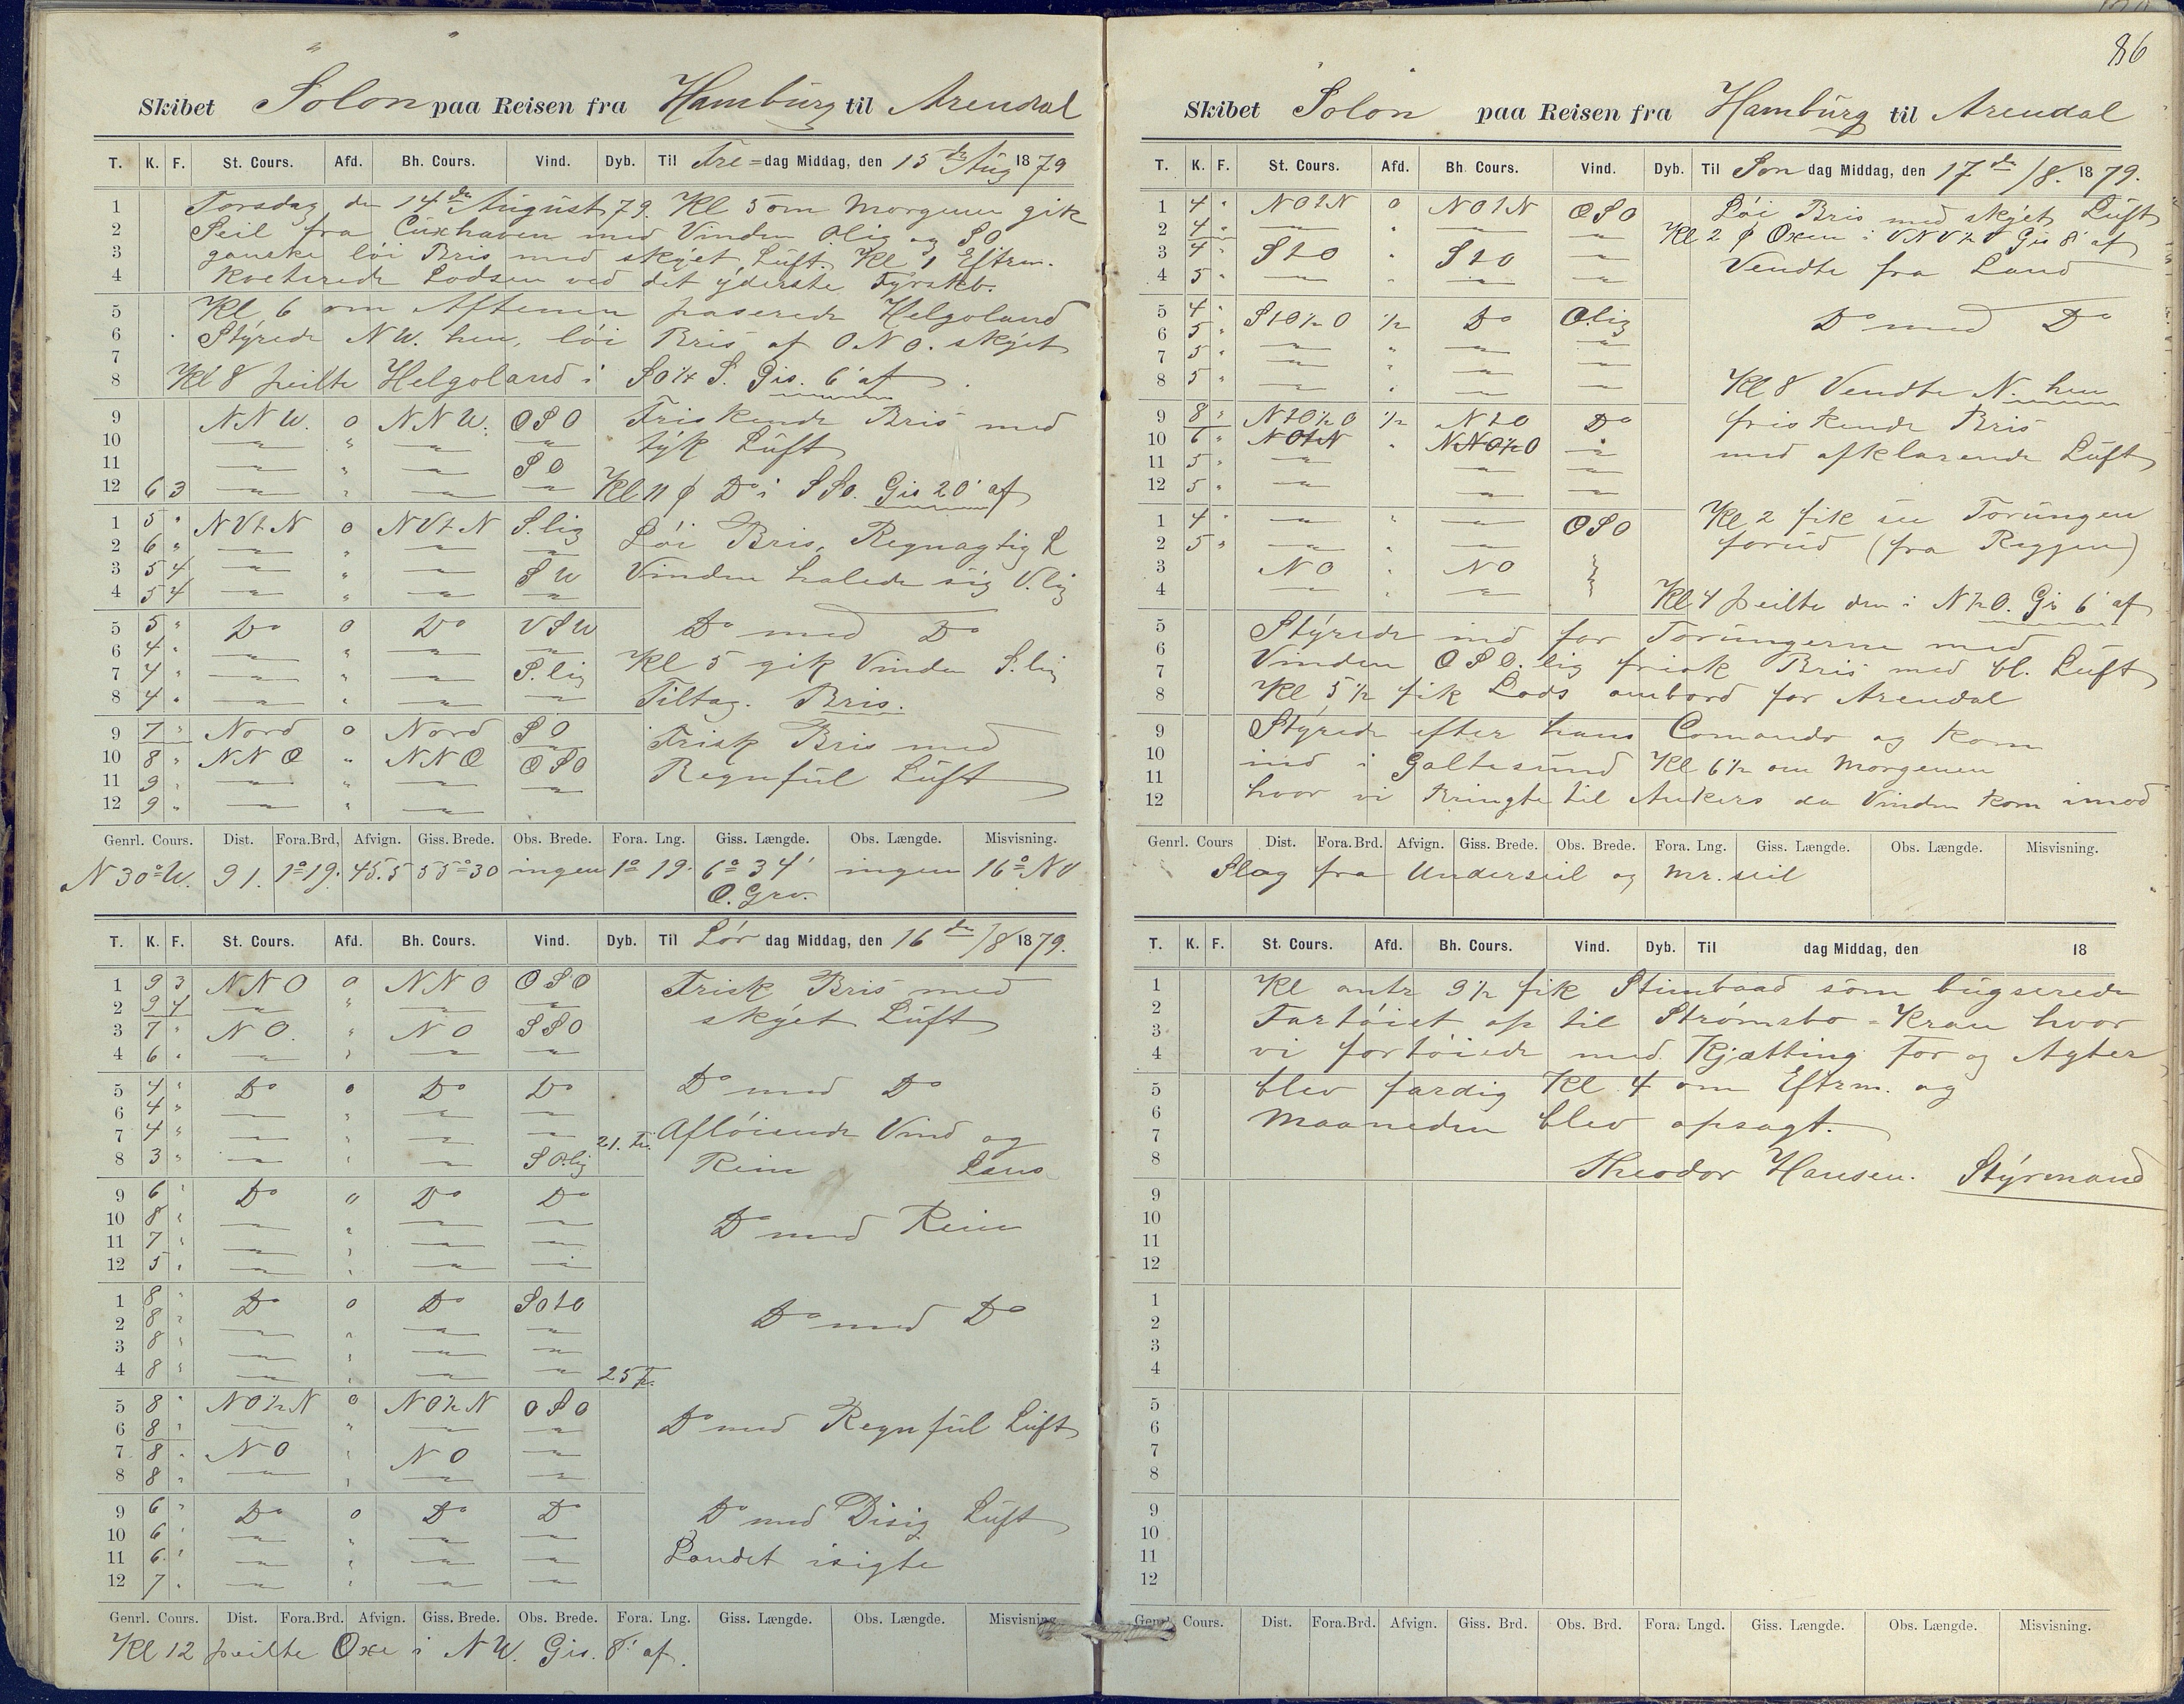 86
Skibet Solon paa Reisen fra Hamburg til Arendal
T. K. F. St. Cours. Afd. Bh. Cours. Vind. Dyb. Til Fre=dag Middag, den 15de Aug 1879
1 Torsdag den 14de August 79. Kl 5 om Morgenen gik
2 Seil fra Cuxhaven med Vinden Olig og SO
3 ganske löi Bris med skyet Luft. Kl 1 Eftrm.
4 kveterede Lodsen ved det yderste Fyrskb.
5 Kl 6 om Aftenen paserede Helgoland
6 Styrede NW. hen, löi Bris af ONO. skyet
7
8 Kl 8 peilte Helgoland i SO¼S. Gis. 6' af.
9 NNW. 0 NNW. OSO Friskende Bris med
10 " " " " tyk Luft
11 " " " SO
12 6 3 " " " " Kl 11 ϕ Do i SSO. Gis 20' af
1 5 " NVtN 0 NVtN S.lig Löi Bris, Regnagtig L
2 6 " " " " "
3 5 4 " " " SW Vinden halede sig V.lig
4 5 4 " " " "
5 5 " Do 0 Do VSW Do med Do
6 4 " " " " "
7 4 " " " " S.lig Kl 5 gik Vinden S.lig
8 4 " " " " " Tiltag. Bris.
9 7 " Nord 0 Nord SO Frisk Bris med
10 8 " NNO " NNO OSO Regnful Luft
11 9 " " " " "
12 9 " " " "
Genrl. Cours. Dist. Fora.Brd, Afvign. Giss. Brede. Obs. Brede. Fora. Lng. Giss. Længde. Obs. Længde. Misvisning.
N 30° W. 91. 1° 19. 45.5 55° 30 ingen 1° 19. 6° 34' ingen 16° NV
O. Grv.
T. K. F. St. Cours. Afd. Bh. Cours. Vind. Dyb. Til Lör dag Middag, den 16de/8 1879.
1 9 3 NNO 0 NNO OSO Frisk Bris med
2 9 4 " " " " skyet Luft
3 7 " NO. " NO SSO
4 6 " " " " "
5 4 " Do 0 Do Do Do med Do
6 4 " " " " "
7 4 " " " " " 21. Fv. Aflöiende Vind og
8 3 " " " " SO.lig Rein
9 6 " Do 0 Do Do
10 8 " " " " " Do med Rein
11 7 " " " " "
12 5 " " " " "
1 8 " Do 0 Do SOtO Do med Do
2 8 " " " " "
3 8 " " " " "
4 8 " " " " " 25 Fv.
5 8 " NO½N 0 NO½N OSO
6 8 " " " " " Do med Regnful Luft
7 8 " NO " NO "
8 8 " " " " "
9 6 " Do 0 Do Do Do med Disig Luft
10 6 " " " " "
11 6 " " " " " Landet isigte
12 7 " " " " "
Genrl. Cours. Dist. Fora.Brd, Afvign. Giss. Brede. Obs. Brede. Fora. Lng. Giss. Længde. Obs. Længde. Misvisning.
Kl 12 peilte Oxe i NW. Gis. 8' af.
Skibet Solon paa Reisen fra Hamburg til Arendal
T. K. F. St. Cours. Afd. Bh. Cours. Vind. Dyb. Til Søn dag Middag, den 17de/8. 1879.
1 4 " NOtN 0 NOtN OSO Löi Bris med skyet Luft
2 4 " " " " " Kl 2 ϕ Oxen i VNV½V Gis 8' af
3 4 " StO " StO " Vendte fra Land
4 5 " " " " "
5 4 " StO½O ½ Do O.lig Do med Do
6 5 " " " " "
7 5 " " " " "
8 5 " " " " " Kl 8 Vendte N. hen
9 8 " NtO½O ½ NtO Do friskende Bris
10 6 " NOtN " NNO½O " med afklarende Luft
11 5 " " " "
12 5 " " " "
1 4 " " " " OSO Kl 2 fik see Torungen
2 5 " " " " forud (fra Riggen)
3 NO " NO
4 " " " Kl 4 peilte den i N½O. Gis 6' af
5 Styrede ind for Torungerne med
6 Vinden OSO.lig frisk Bris med bl. Luft
7 Kl 5½ fik Lods ombord for Arendal
8
9 Styrede efter hans Comando og kom
10 ind i Galtesund Kl 6½ om Morgenen
11 hvor vi bringte til Ankers da Vinden kom imod
12
Genrl. Cours Dist. Fora.Brd. Afvign. Giss. Brede. Obs. Brede. Fora. Lng. Giss. Længde. Obs. Længde. Misvisning.
Slag fra Underseil og Mr. seil
T. K. F. St. Cours. Afd. Bh. Cours. Vind. Dyb. Til dag Middag, den 18
1 Kl antr 9½ fik Stimbaad som bugserede
2 Fartöiet op til Strömsbo=Kran hvor
3
4 vi fortöiede med Kjætting For og Agter
5 blev færdig Kl 4 om Eftrm. og
6 Maaneden blev opsagt.
7
8 Theodor Hansen. Styrmand
9
10
11
12
1
2
3
4
5
6
7
8
9
10
11
12
Genrl. Cours. Dist. Fora.Brd. Afvign. Giss. Brd. Obs. Brd. Fora. Lngd. Giss. Længde. Obs. Længde. Misvisning.